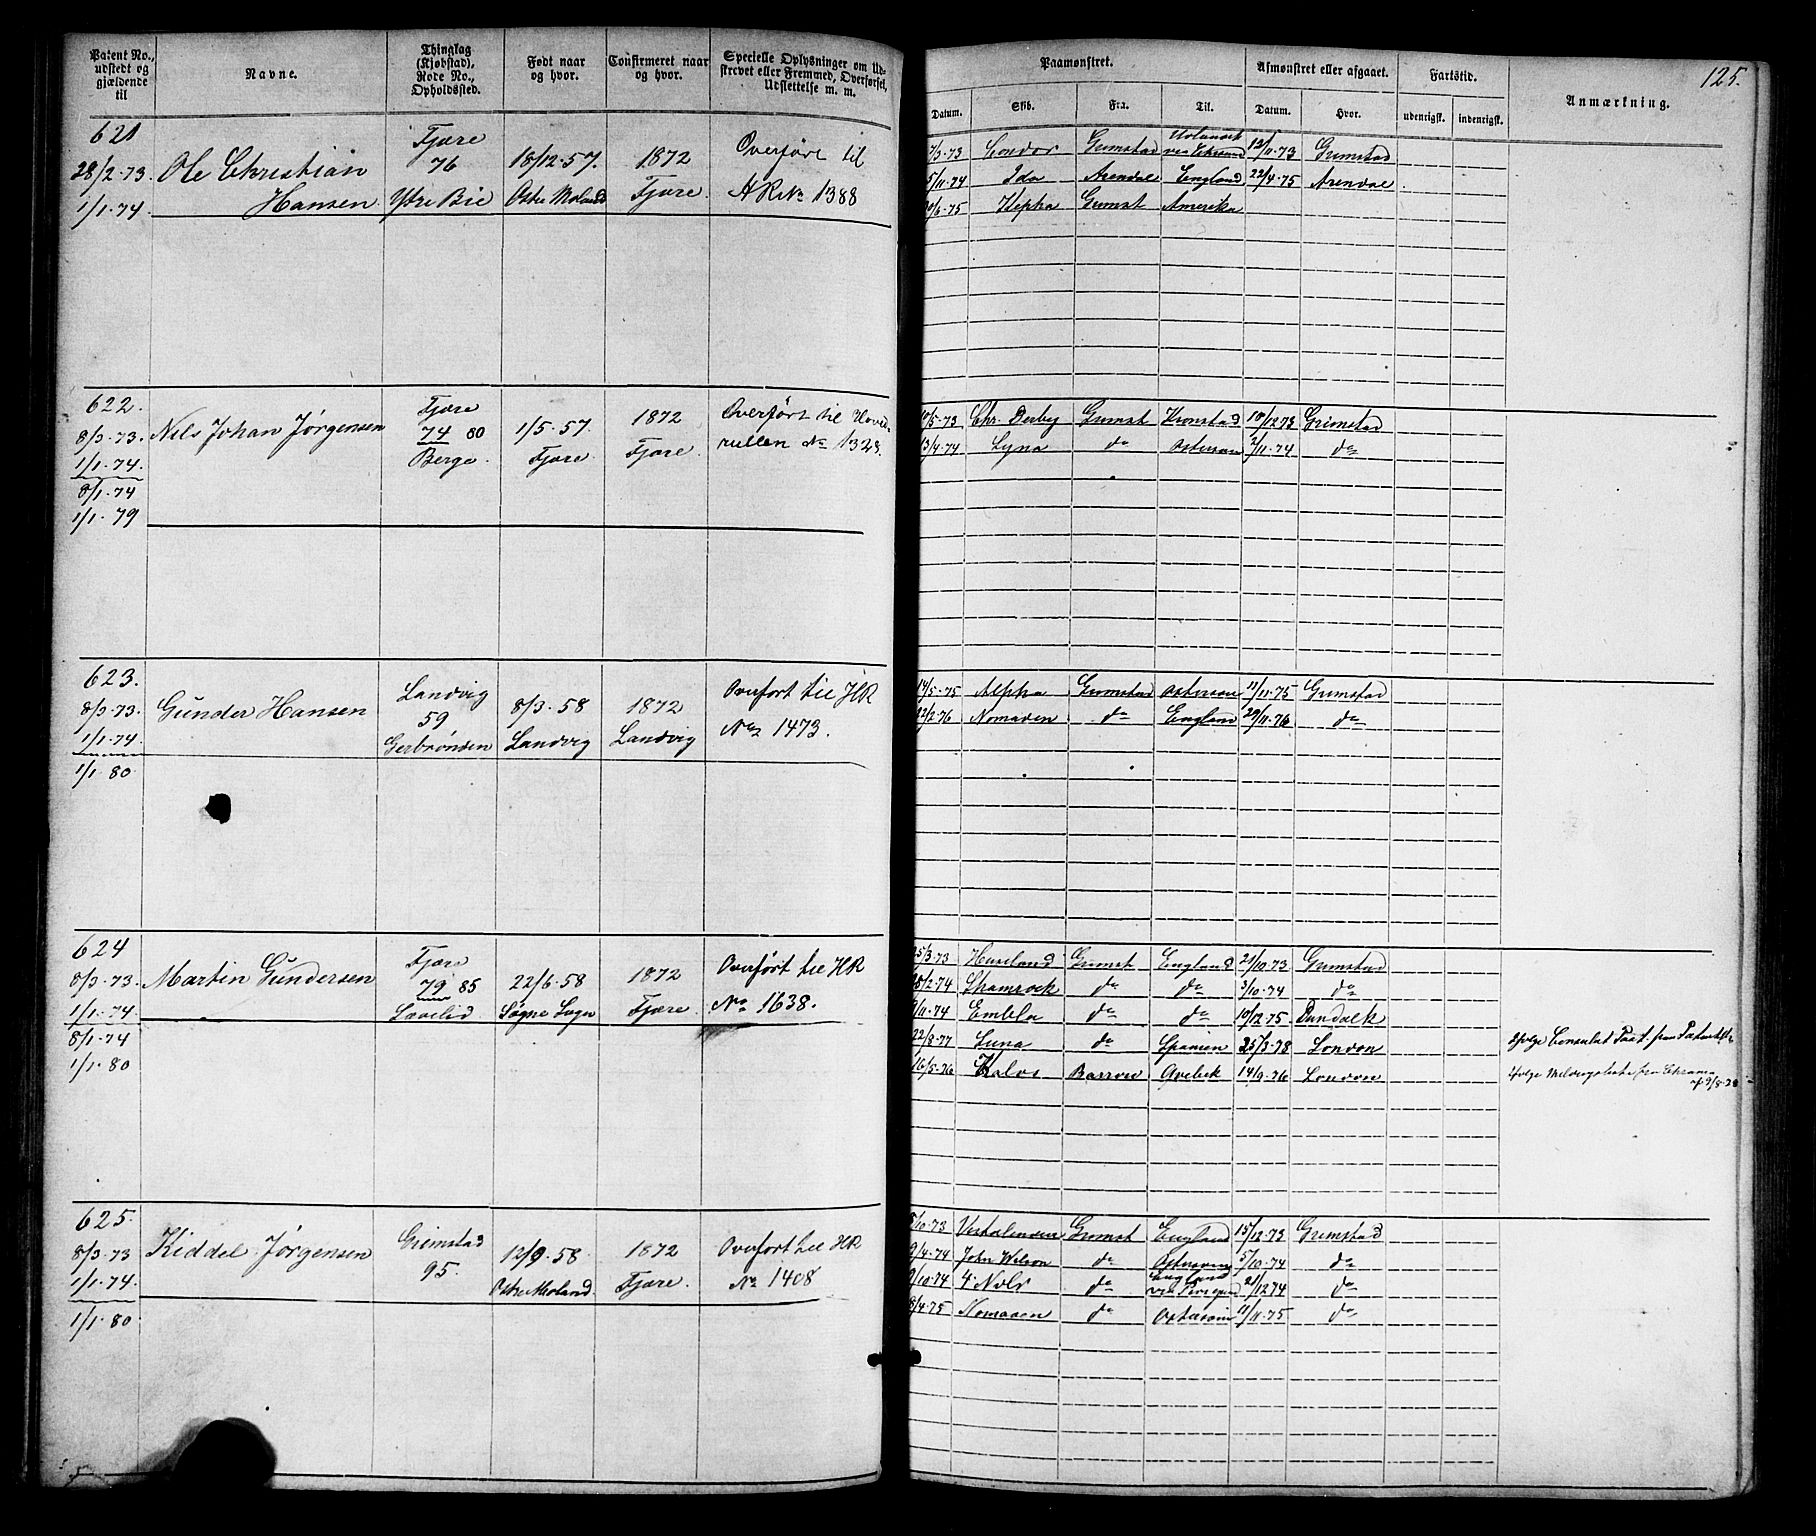 125.
Patent No., udstedt og gjældende til
Navne.
Thinglag (Kjøbstad), Rode No., Opholdssted.
Født naar og hvor.
Confirmeret naar og hvor.
Specielle Oplysninger om Udskrevet eller Fremmed, Overførsel, Udslettelse m. m.
Paamønstret.
Afmønstret eller afgaaet.
Fartstid.
Anmærkning.
Datum.
Skib.
Fra.
Til.
Datum.
Hvor.
udenrigsk.
indenrigsk.
621
28/2-73. Ole Christian Hansen
1/1-74.
Fjære 76 Ytre Bie
18/12-57. Østre Moland
1872 Fjære
Overført til HR No 1388
7/3-73 Condor Grimstad 12/11-73 Grimstad
5/11-74 Ida Arendal England 22/4-75 Arendal
Grimst Amerika
622.
8/3-73. Nils Johan Jørgensen
1/1-74.
8/1-74
1/1-79
Fjære 74 80 Berge
1/5-57. Fjære
1872 Fjære
Overført til Hovedrullen No 1328.
10/5-73 Chr. Derby Grimst Kronstad 10/12 73 Grimstad
13/4-74 Lyna do Østersøn 2/11-74 do
623.
8/3-73. Gunder Hansen
1/1-74.
1/1-80
Landvig 59
8/3-58 Landvig
1872 Landvig
Overført til HR No 1473.
14/5-75 Alpha Grimstad Østersøn 11/11-75 Grimstad
22/2-76 Nomaden do England 29/11-76 do
624
8/3-73. Martin Gundersen
1/1-74
8/1-74
1/1-80
Fjære 79 85
22/6-58 Søgne Sogn
1872 Fjære
Overført til HR No 1638.
25/3-73 Grimst England 21/10-73 Grimstad
18/2-74 Shamrock do do 3/10-74 do
9/11-74 Embla do do 10/12-75 Dundalk
22/8-77 Luna do Spanien 25/3-78 London
16/5-76 Barrow Qvebek 14/9-76 London
625.
8/3-73 Kiddel Jørgensen
1/1-74.
1/1-80
Grimstad 95.
12/9-58 Østre Moland.
1872 Fjære.
Overført til HR No 1408
5/10-73 Grimst England 15/12-73 Grimstad
9/4-74 John Wilson do 5/10-74 do
9/10-74 do England 21/12 74 do
8/4-75 Nomaden do 11/11-75 do